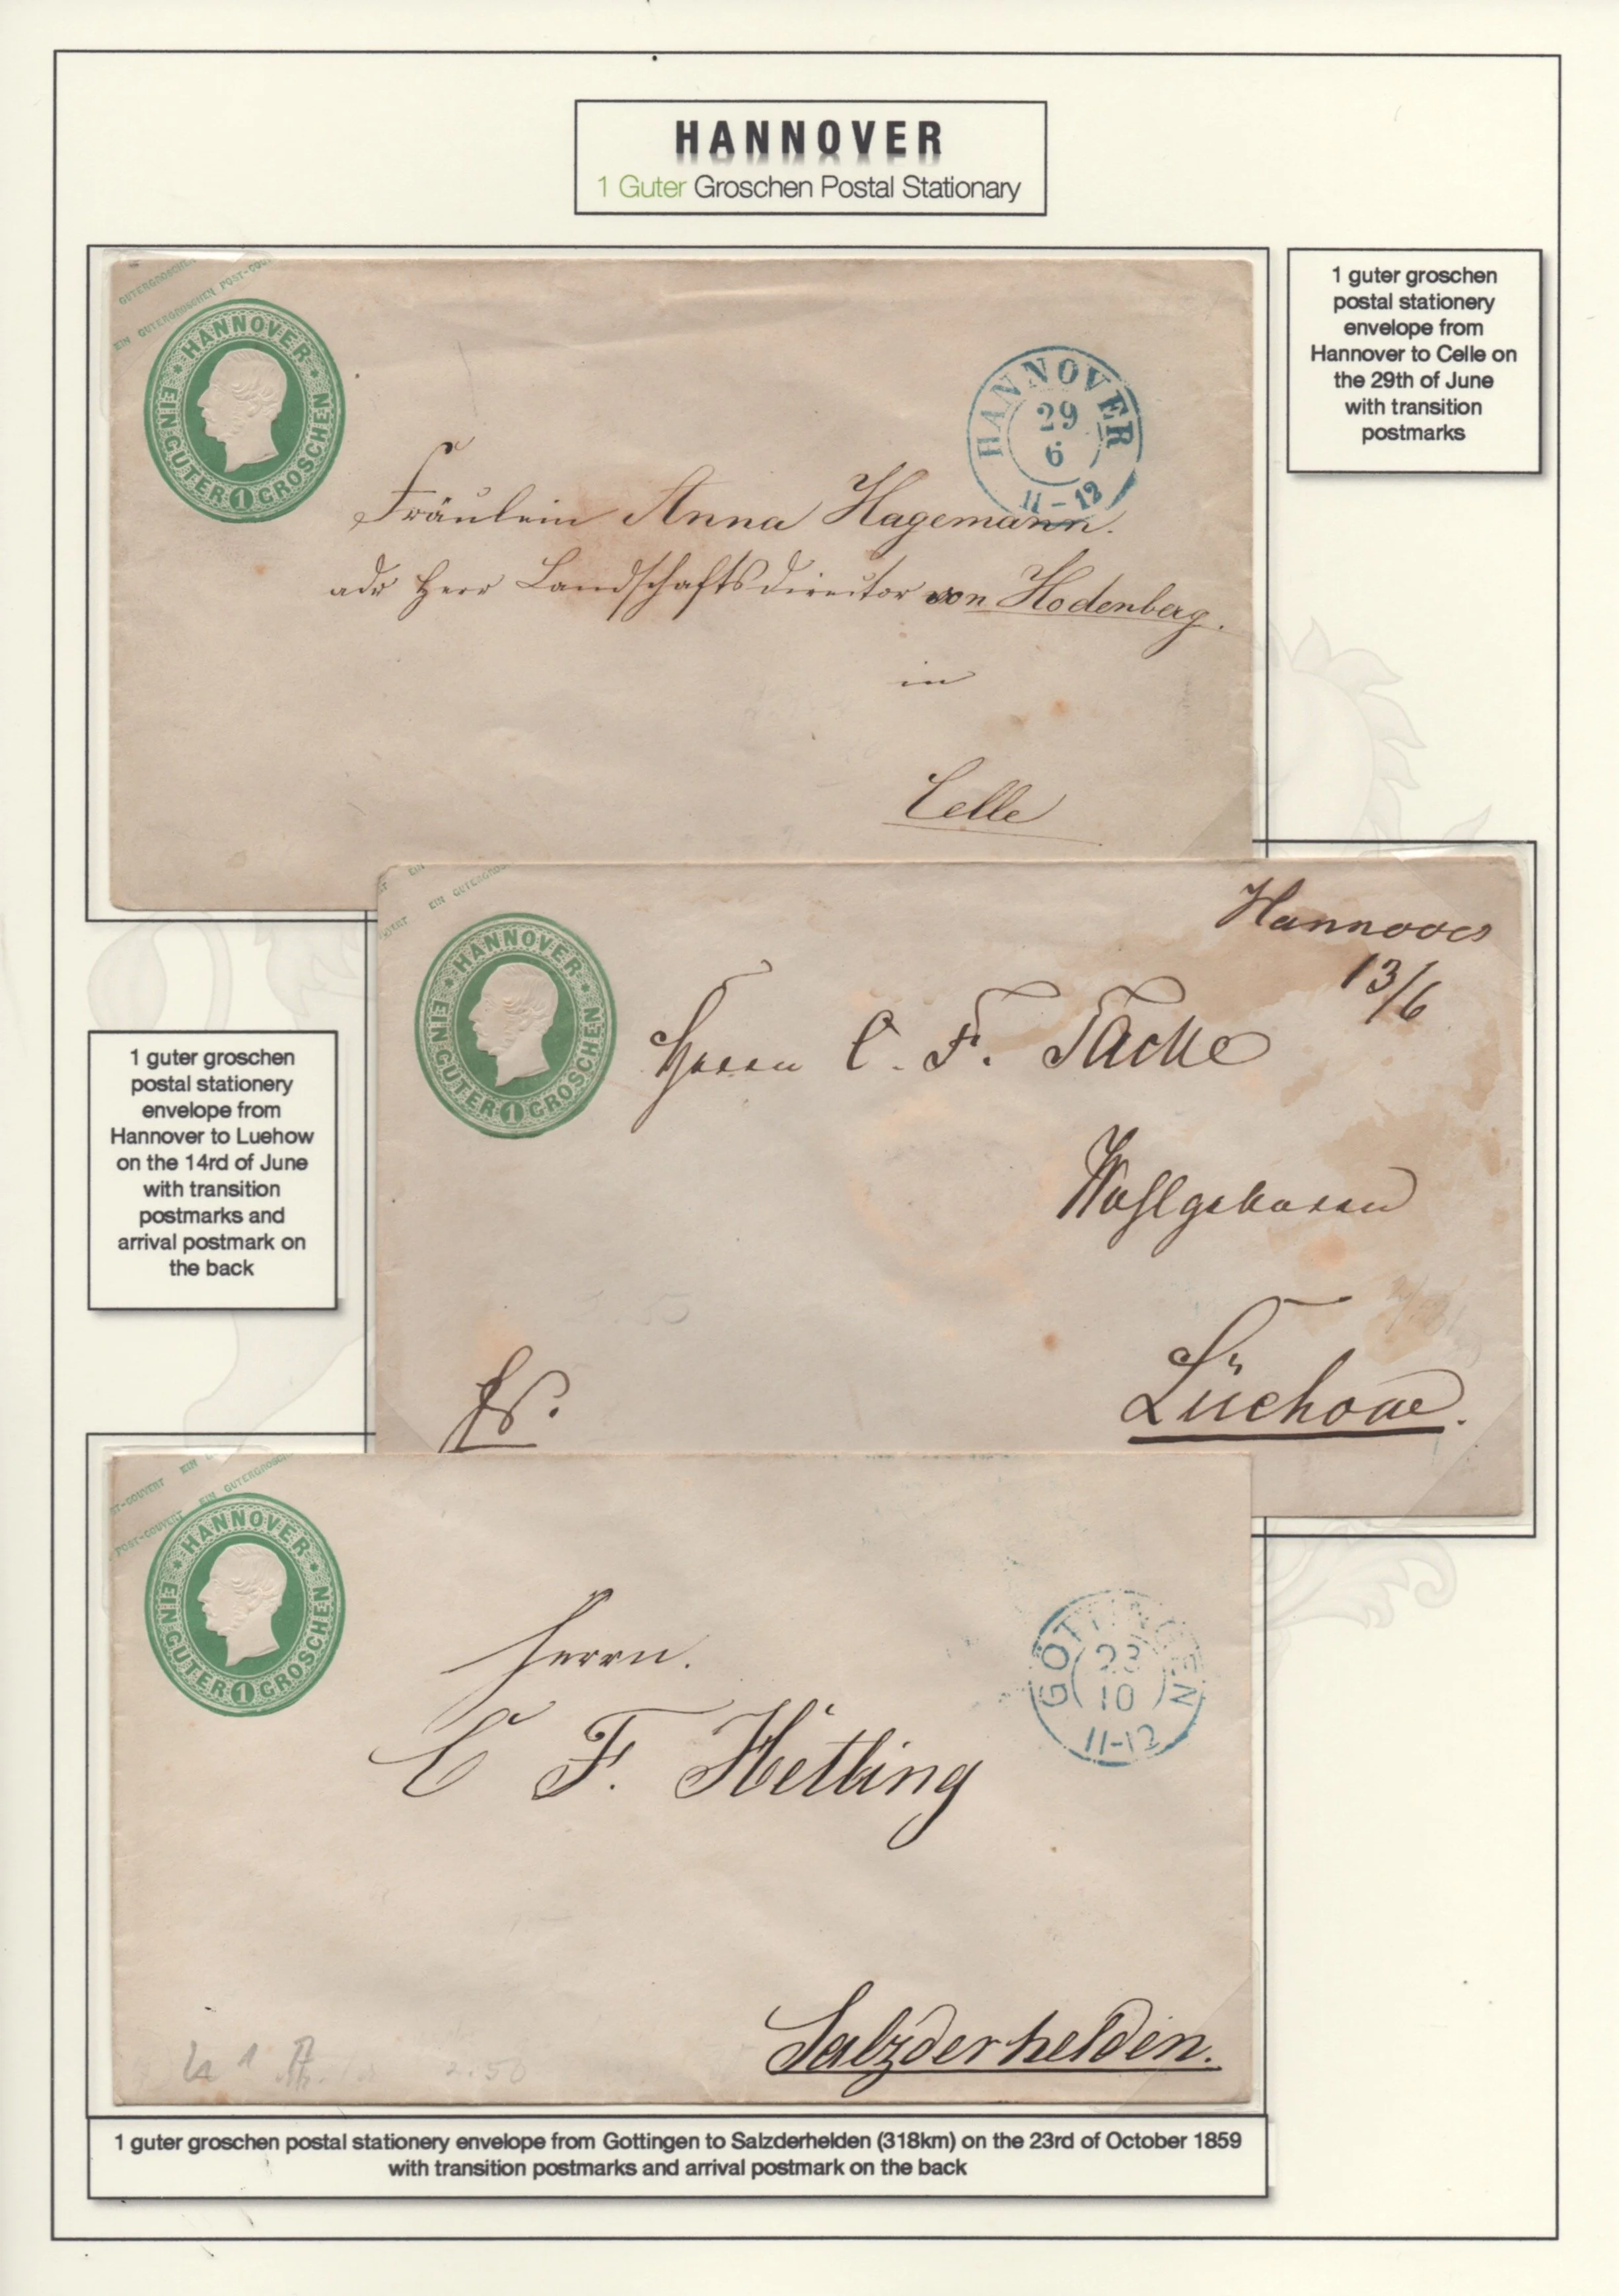 HANNOVER
1 Guter Groschen Postal Stationary
GUTERGROSCHEN
EIN GUTERGROSCHEN POST-COU
HANNOVER
EIN GUTER 1 GROSCHEN
HANNOVER
29
6
11-12
Fräulein Anna Hagemann.
adr Herr Landschaftsdirector von Hodenberg.
in
Celle
1 guter groschen
postal stationery
envelope from
Hannover to Celle on
the 29th of June
with transition
postmarks
EIN
EIN GUTERGROS
HANNOVER
EIN GUTER 1 GROSCHEN
Hannover
13/6
Herrn C. F. Tacke
Wohlgeboren
Lüchow.
fr.
1 guter groschen
postal stationery
envelope from
Hannover to Luehow
on the 14rd of June
with transition
postmarks and
arrival postmark on
the back
ST-COUVERT EIN
POST-COUVERT EIN GUTERGROSC
HANNOVER
EIN GUTER 1 GROSCHEN
GÖTTINGEN
23
10
11-12
Herrn.
C F. Hetling
Salzderhelden.
2.50
1 guter groschen postal stationery envelope from Gottingen to Salzderhelden (318km) on the 23rd of October 1859
with transition postmarks and arrival postmark on the back